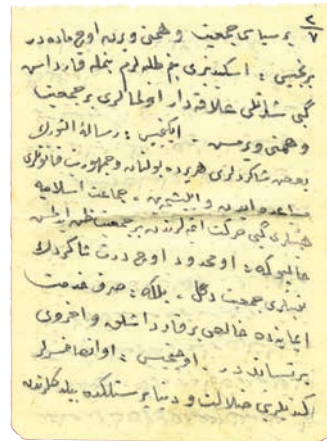 ٢/٧
بر سیاسی جمعیت وهمنی ویرن اوچ ماده در
برنجیسی : اسکیدنبری بنم طلبه لرم بنمله قارداش
کبی شدتلی علاقه دار اولمالری بر جمعیت
وهمنی ویرمش . ایکنجیسی : رسالة النورك
بعض شاکردلری هر یرده بولنان و جمهوریت قانونلری
مساعده ایدن و ایلیشمین جماعت اسلامیه
کبی حرکت ایتمه لرندن بر جمعیت ظن ایدلمش
حالبوکه : او محدود اوچ درت شاکردك
نیتلری جمعیت دکل ، بلکه : صرف خدمت
ایمانیه ده خالص بر قارداشلق و اخروی
بر تساند در . اوچنجیسی : او انصافسزلر
کندیلری ضلالت و دنیا پرستلکده بیلدکلرندن